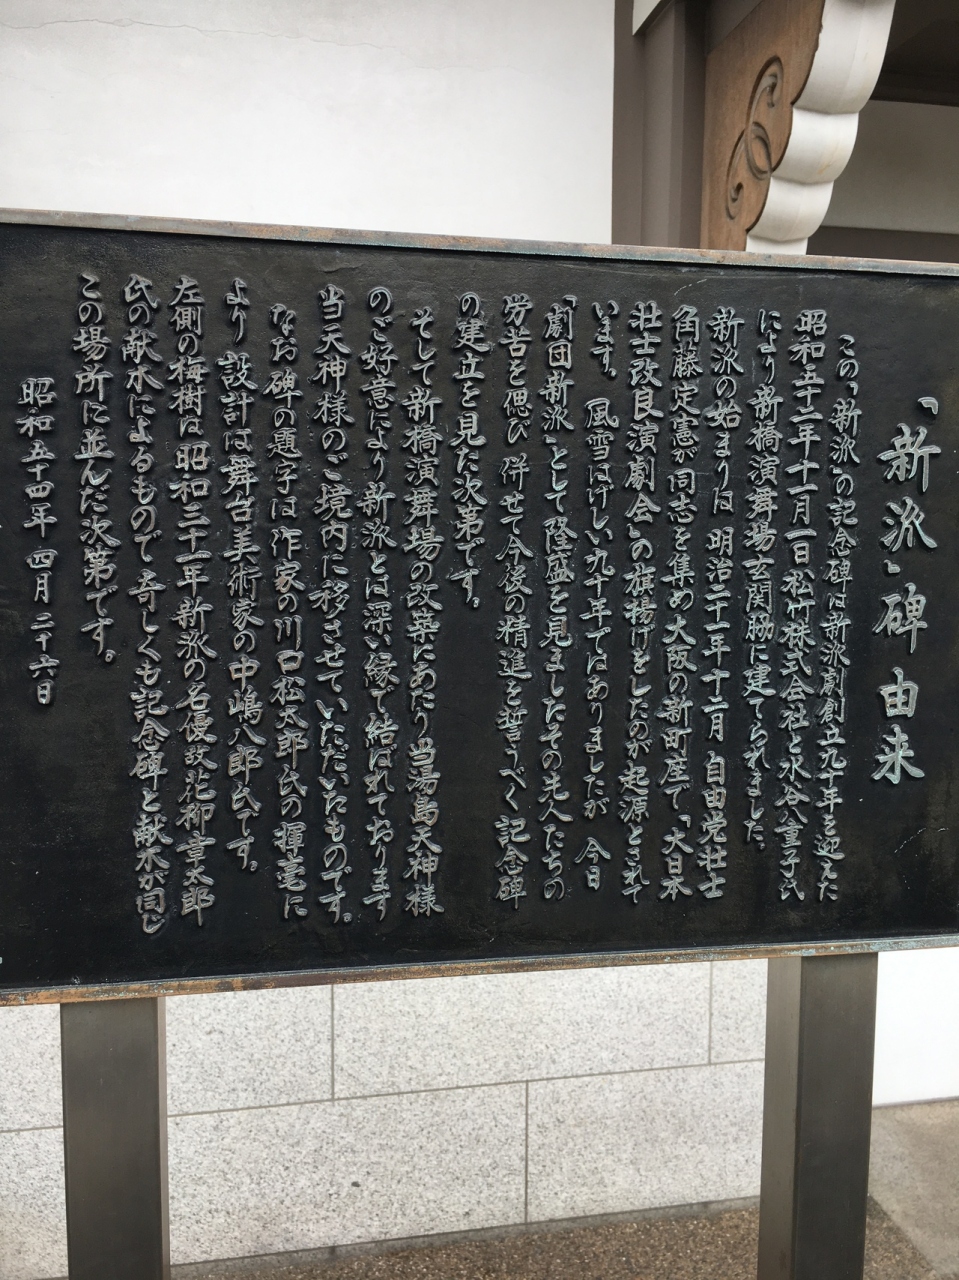 「新派」碑由来
この「新派」の記念碑は新派劇創立九十年を迎えた
昭和五十二年十一月一日松竹株式会社と水谷八重子氏
により新橋演舞場玄関脇に建てられました。
新派の始まりは 明治二十一年十二月 自由党壮士
角藤定憲が同志を集め大阪の新町座で「大日本
壮士改良演劇会」の旗揚げをしたのが起源とされて
います。 風雪はげしい九十年ではありましたが 今日
「劇団新派」として隆盛を見ましたその先人たちの
労苦を偲び 併せて今後の精進を誓うべく 記念碑
の建立を見た次第です。
そして新橋演舞場の改築にあたり当湯島天神様
のご好意により新派とは深い縁で結ばれております
当天神様のご境内に移させていただいたものです。
なお碑の題字は 作家の川口松太郎氏の揮毫に
より 設計は舞台美術家の中嶋八郎氏です。
左側の梅樹は昭和三十一年新派の名優故花柳章太郎
氏の献木によるもので奇しくも記念碑と献木が同じ
この場所に並んだ次第です。
昭和五十四年 四月二十六日